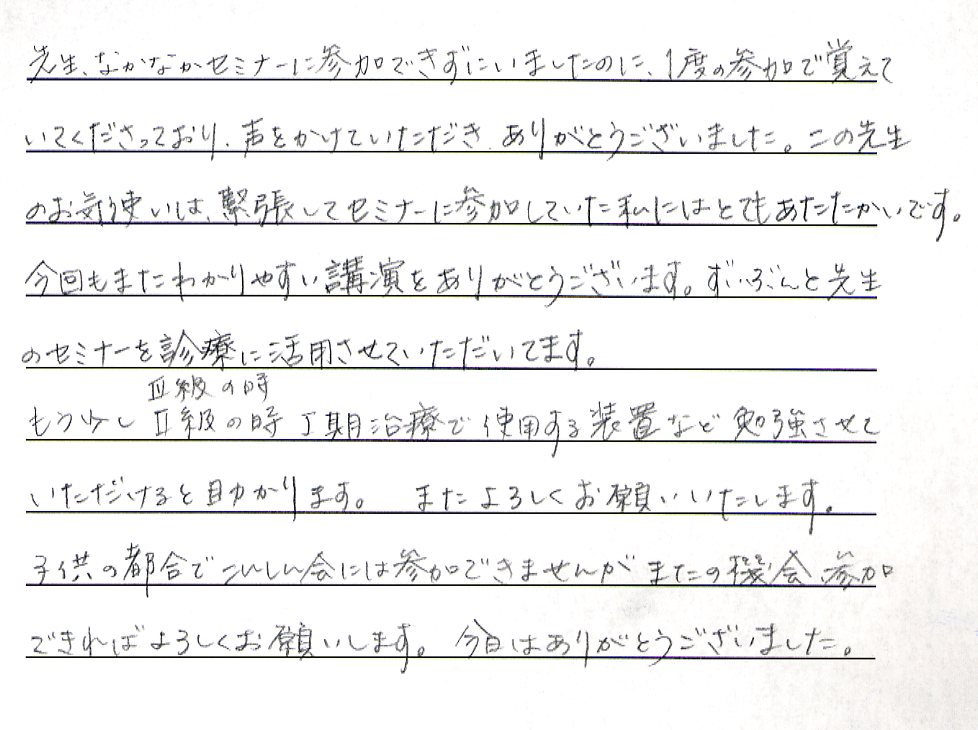 先生、なかなかセミナーに参加できずにいましたのに、1度の参加で覚えて
いてくださっており、声をかけていただき、ありがとうございました。この先生
のお気使いは、緊張してセミナーに参加していた私にはとてもあたたかいです。
今回もまたわかりやすい講演をありがとうございます。ずいぶんと先生
のセミナーを診療に活用させていただいてます。
Ⅲ級の時
もう少しⅡ級の時Ⅰ期治療で使用する装置など勉強させて
いただけると助かります。 またよろしくお願いいたします。
子供の都合でこんしん会には参加できませんがまたの機会、参加
できればよろしくお願いします。 今日はありがとうございました。